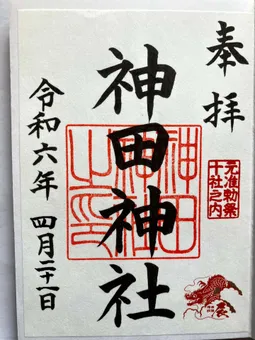 奉拝
元准勅祭
十社之内
神田神社
神田
神社
之印
令和六年 四月二十一日